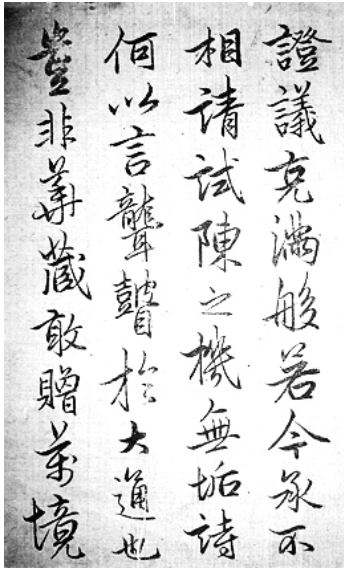 證議克滿般若今承不
相請試陳之機無垢詩
何以言聾瞽於大通也
豈非華藏敢贈萬境